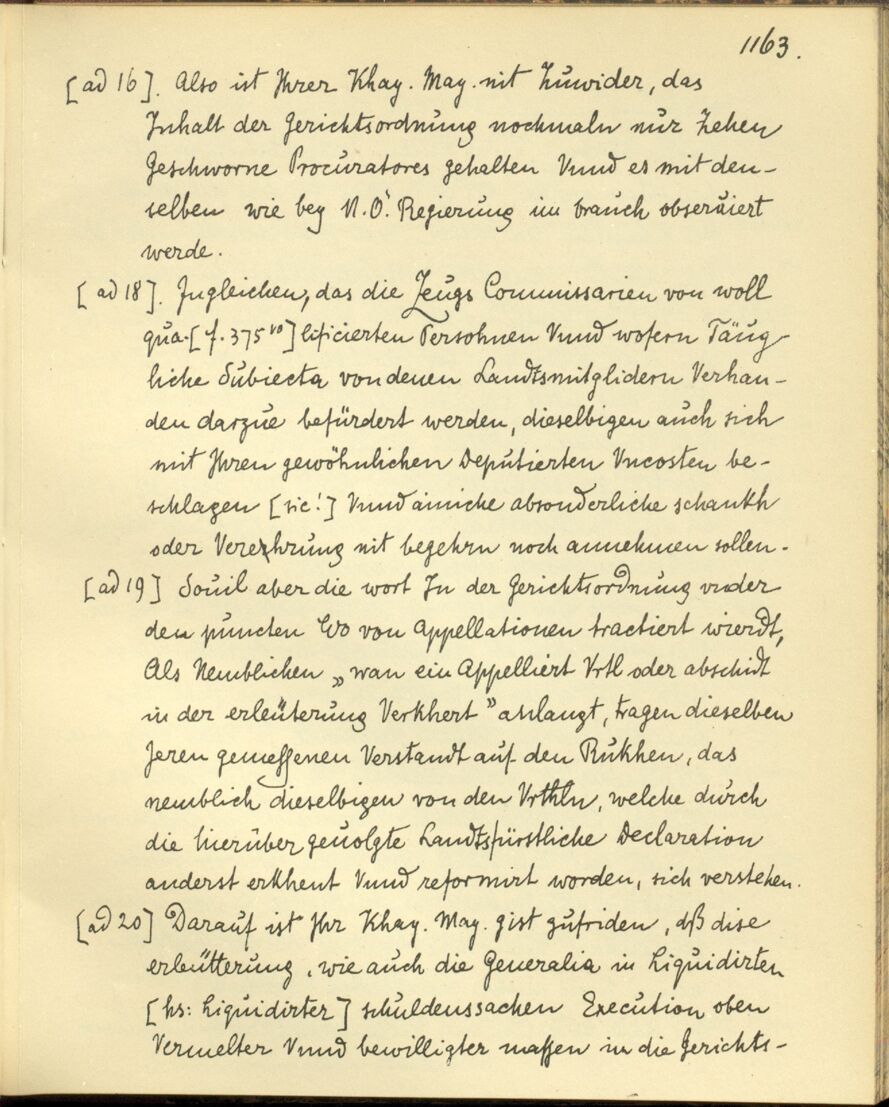 1163.
[ad 16]. Also ist Ihrer Khay. May. nit Zuwider, das
Inhalt der Gerichtsordnung nochmaln nur Zehen
Geschworne Procuratores gehalten Vnnd es mit den-
selben wie bey N.Ö. Regierung im brauch obseruiert
werde.
[ad 18]. Ingleichen, das die Zeugs Commissarien von woll
qua-[f. 375 vo] lificierten Persohnen Vnnd wofern Täug-
liche Subiecta von denen Landtsmitglidern Verhan-
den darzue befürdert werden, dieselbigen auch sich
mit Ihren gewöhnlichen Deputierten Vncosten be-
schlagen [sic!] Vnnd ainiche absonderliche schankh
oder Verehrung nit begehrn noch annehmen sollen.
[ad 19] Souil aber die wort In der Gerichtsordnung vnder
den puncten Wo von Appellationen tractiert wierdt,
Als Nemblichen „wan ein Appelliert Vrtl oder abschidt
in der erleüterung Verkhert" anlangt, tragen dieselben
Jeren gemessenen Verstandt auf den Rukhen, das
nemblich dieselbigen von den Vrthln, welche durch
die hierüber geuolgte Landtsfürstliche Declaration
anderst erkhent Vnnd reformirt worden, sich verstehen.
[ad 20] Darauf ist Ihr Khay. May. gist zufriden, dß dise
erleütterung, wie auch die Generalia in Liquidirten
[hs: Liquidirter] schuldenssachen Execution oben
Vermelter Vnnd bewilligter massen in die Gerichts-